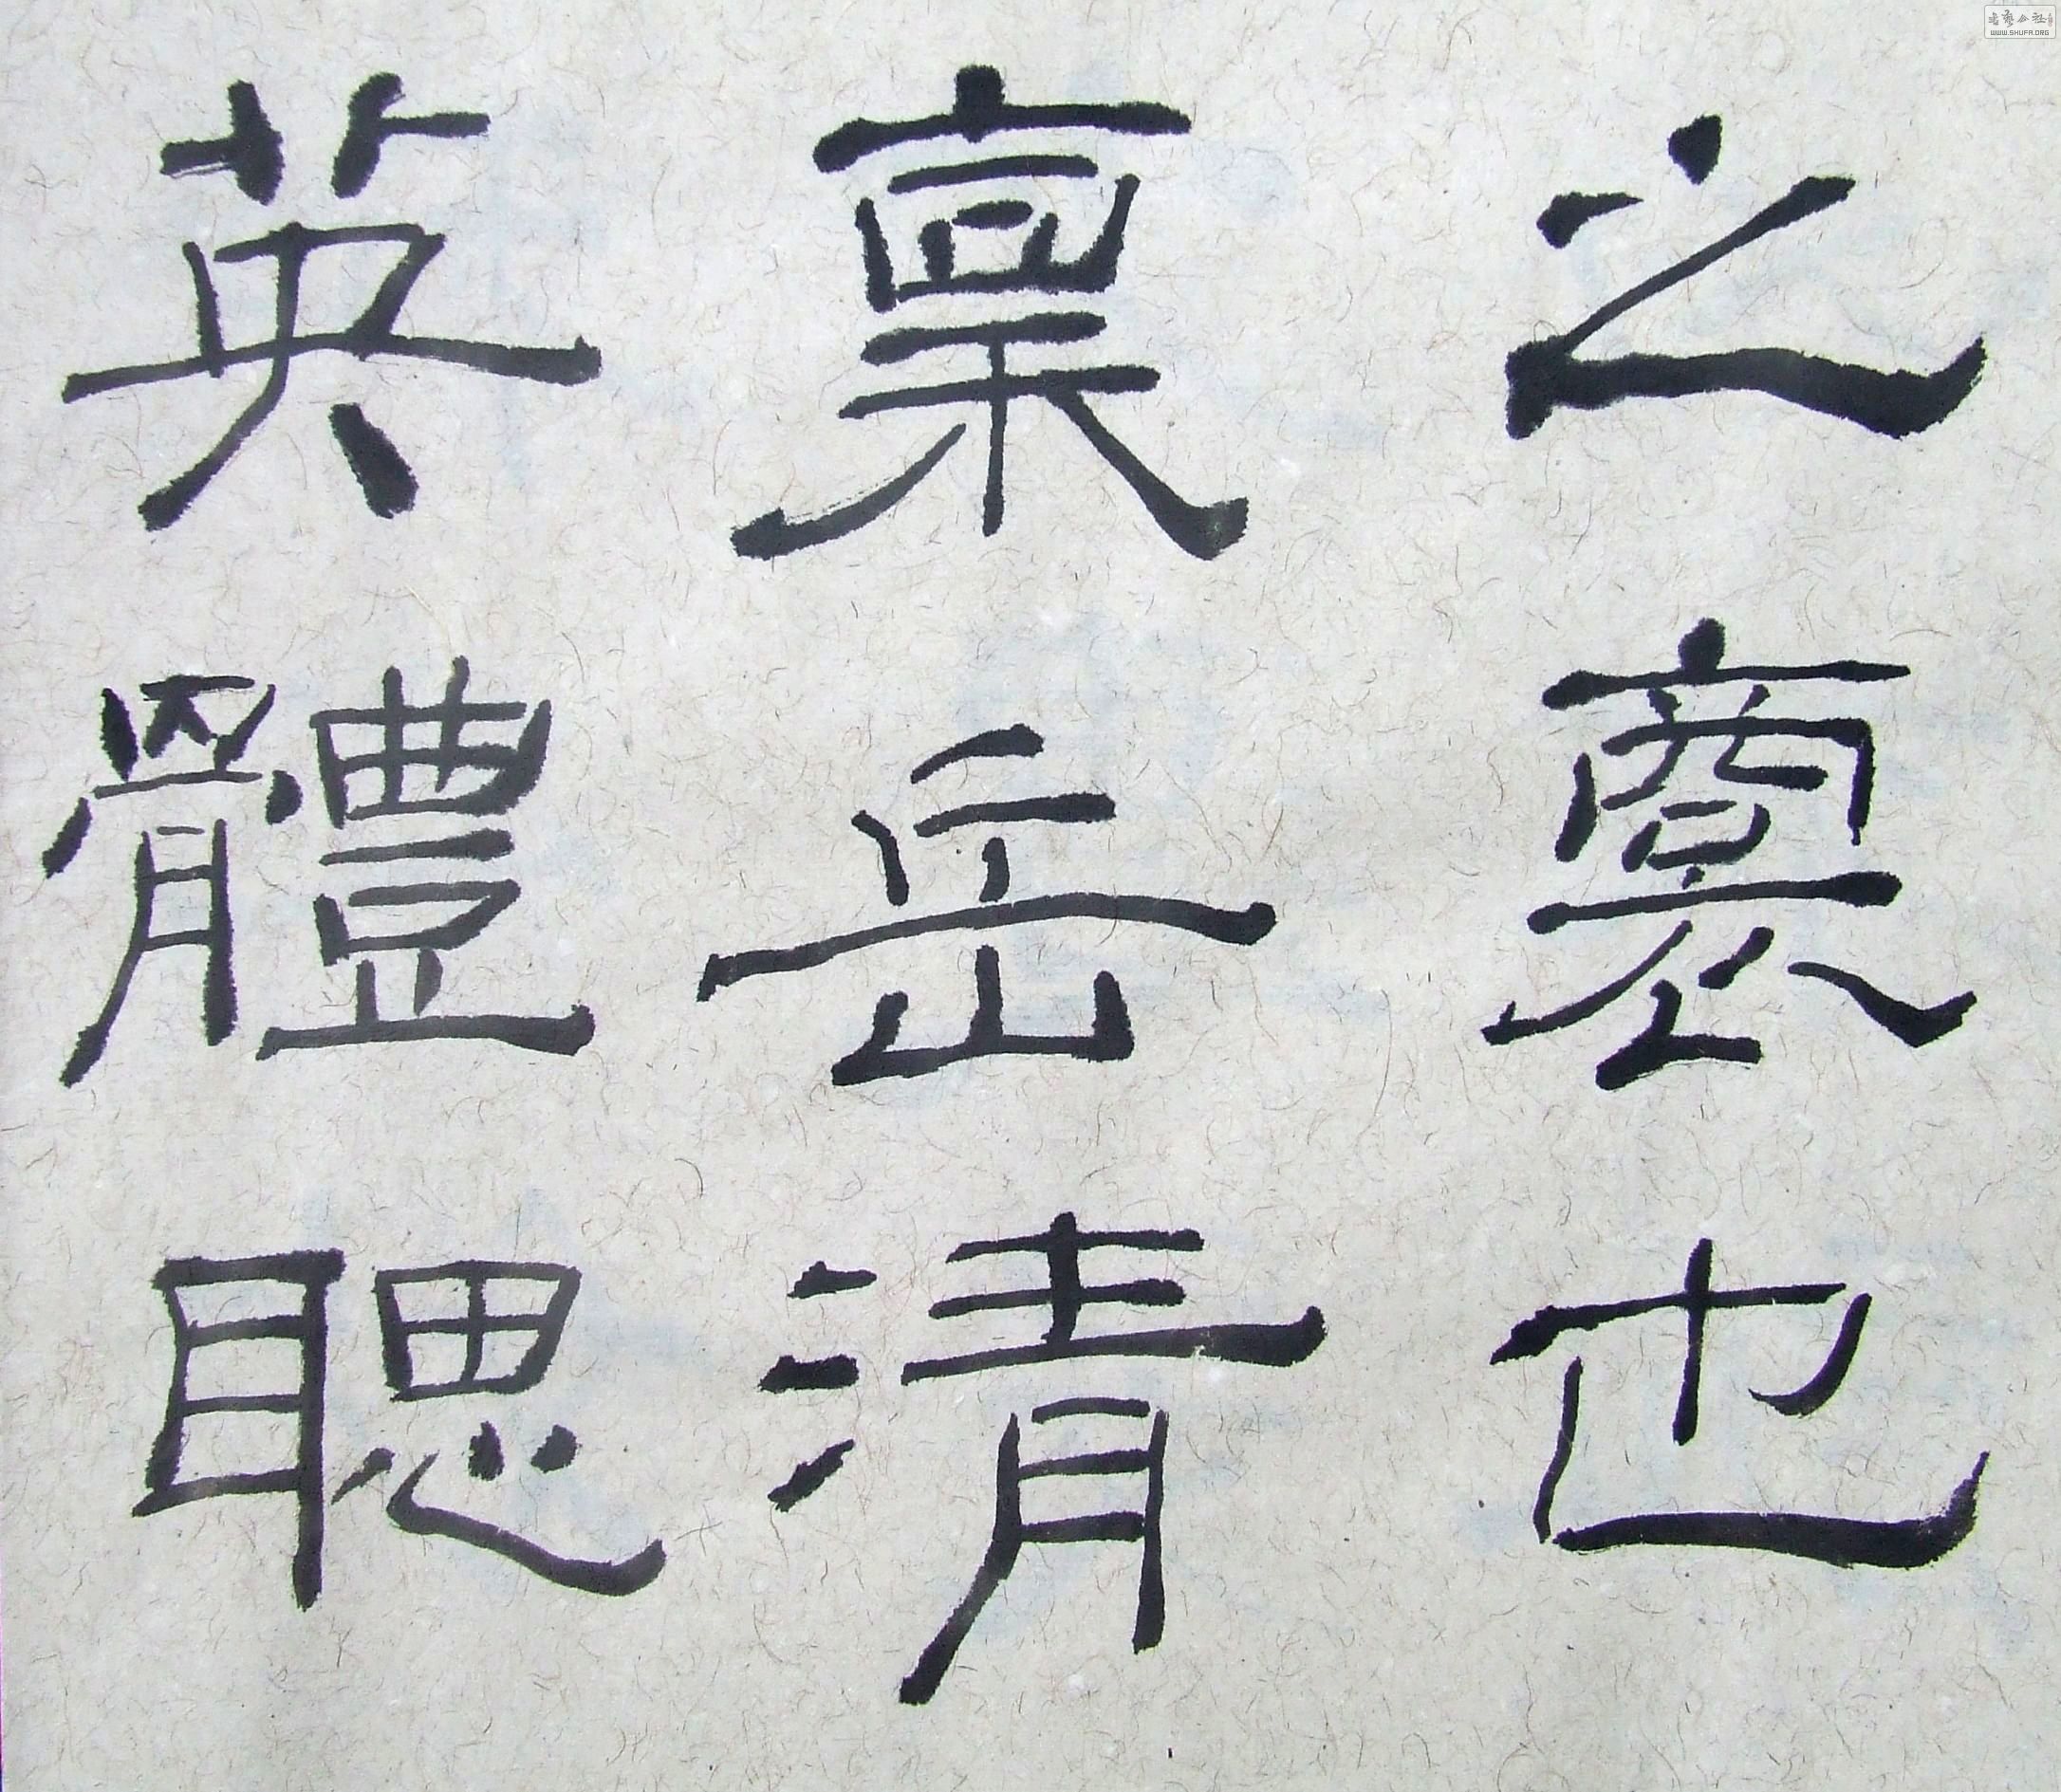 之裔也
稟岳清
英體聰
WWW.SHUFA.ORG